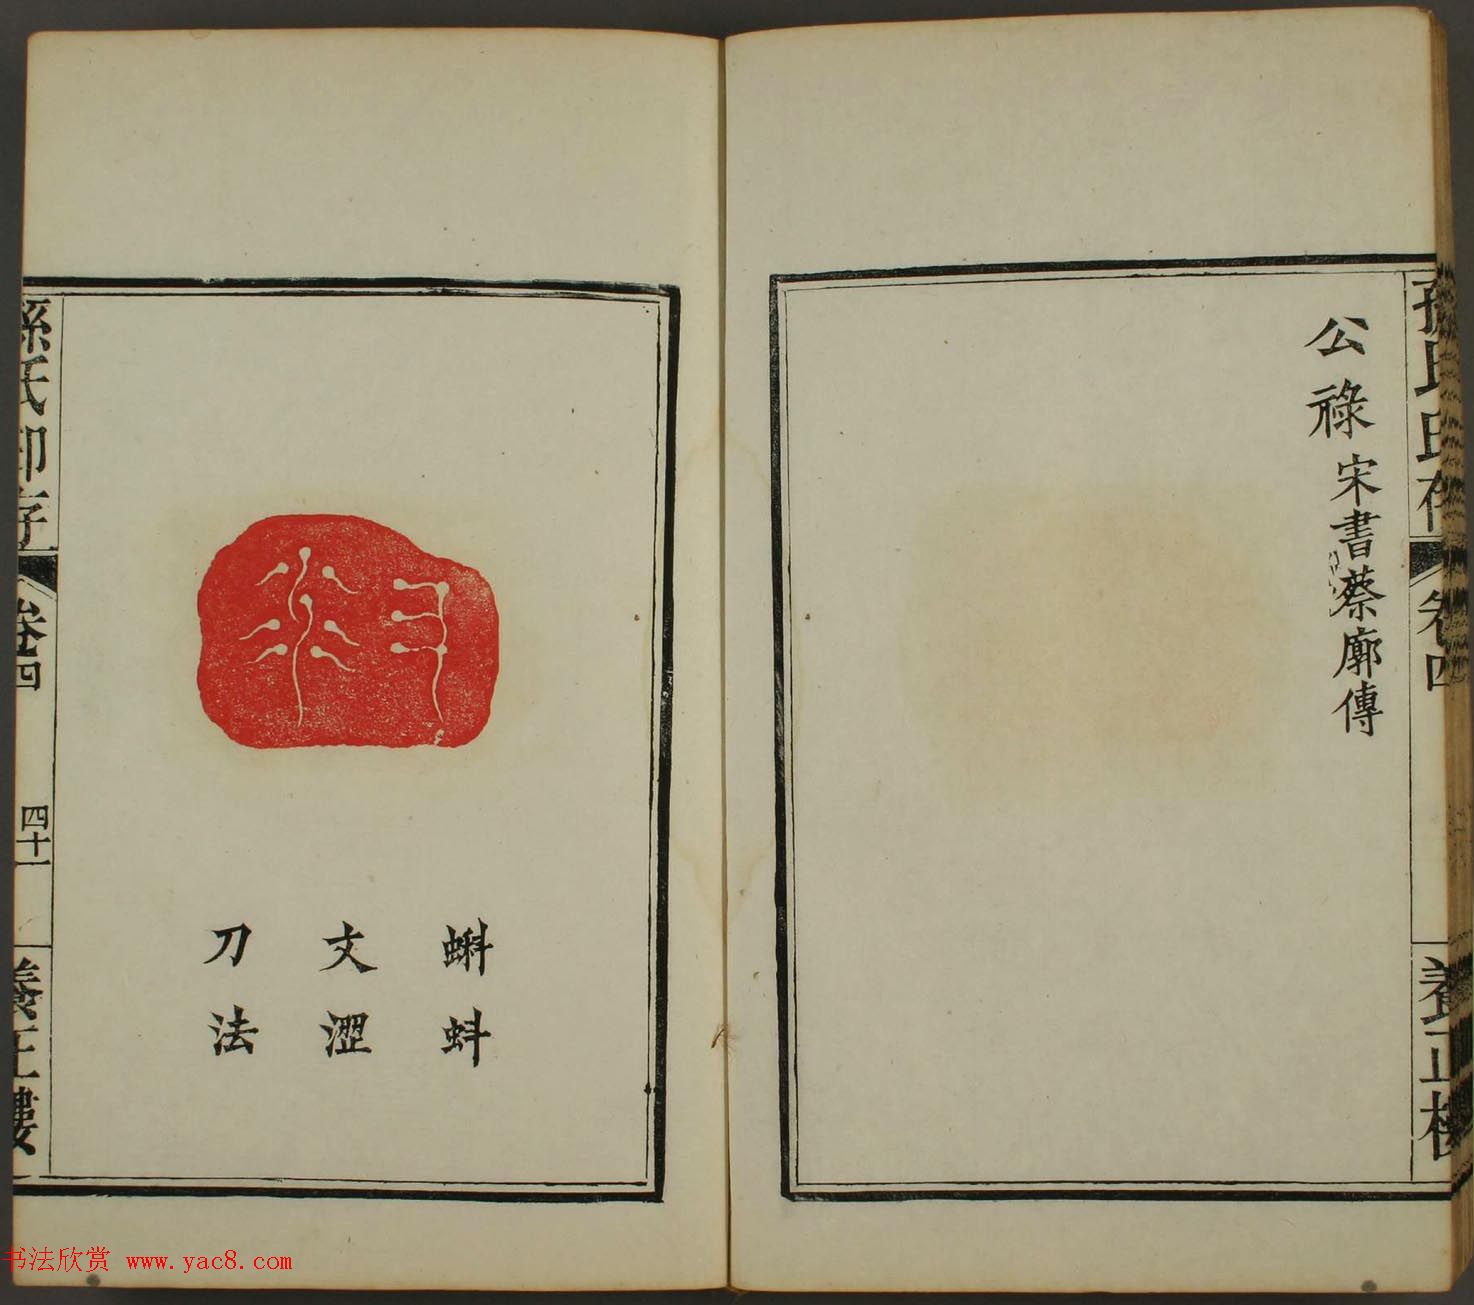 孫氏印存
卷四
養正樓
公祿 宋書蔡廓傳
蝌蚪
文澀
刀法
孫氏印存
卷四
四十一
養正樓
书法欣赏 www.yac8.com